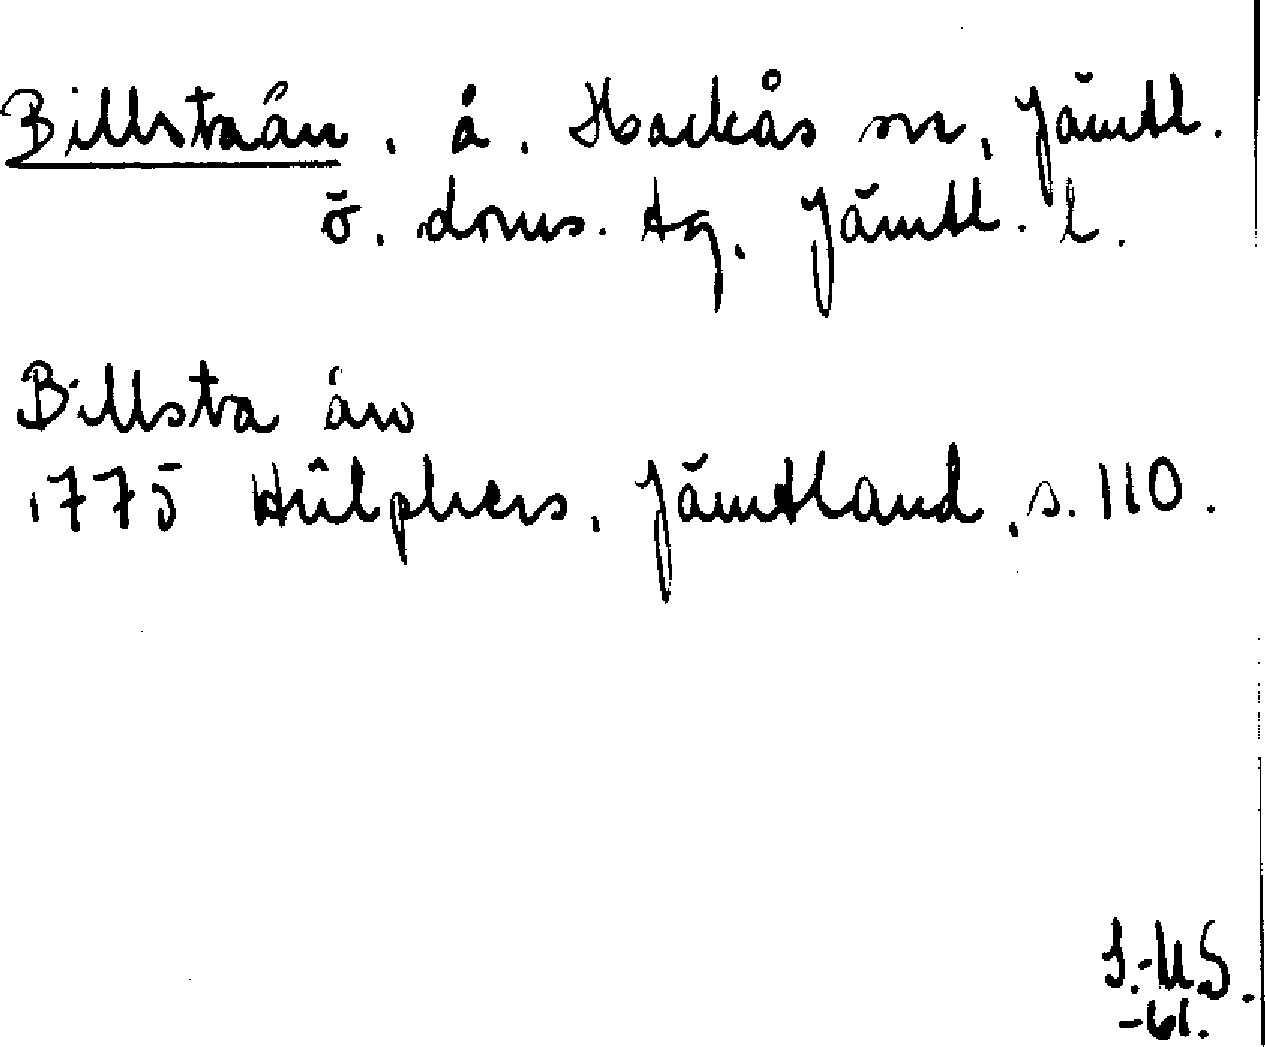 Billstaån, å, Hackås sn, Jämtl.
ö. doms. tg, Jämtl. l.
Billsta ån
1775 Hülphers, Jämtland, s. 110.
I.-MS.
-61.